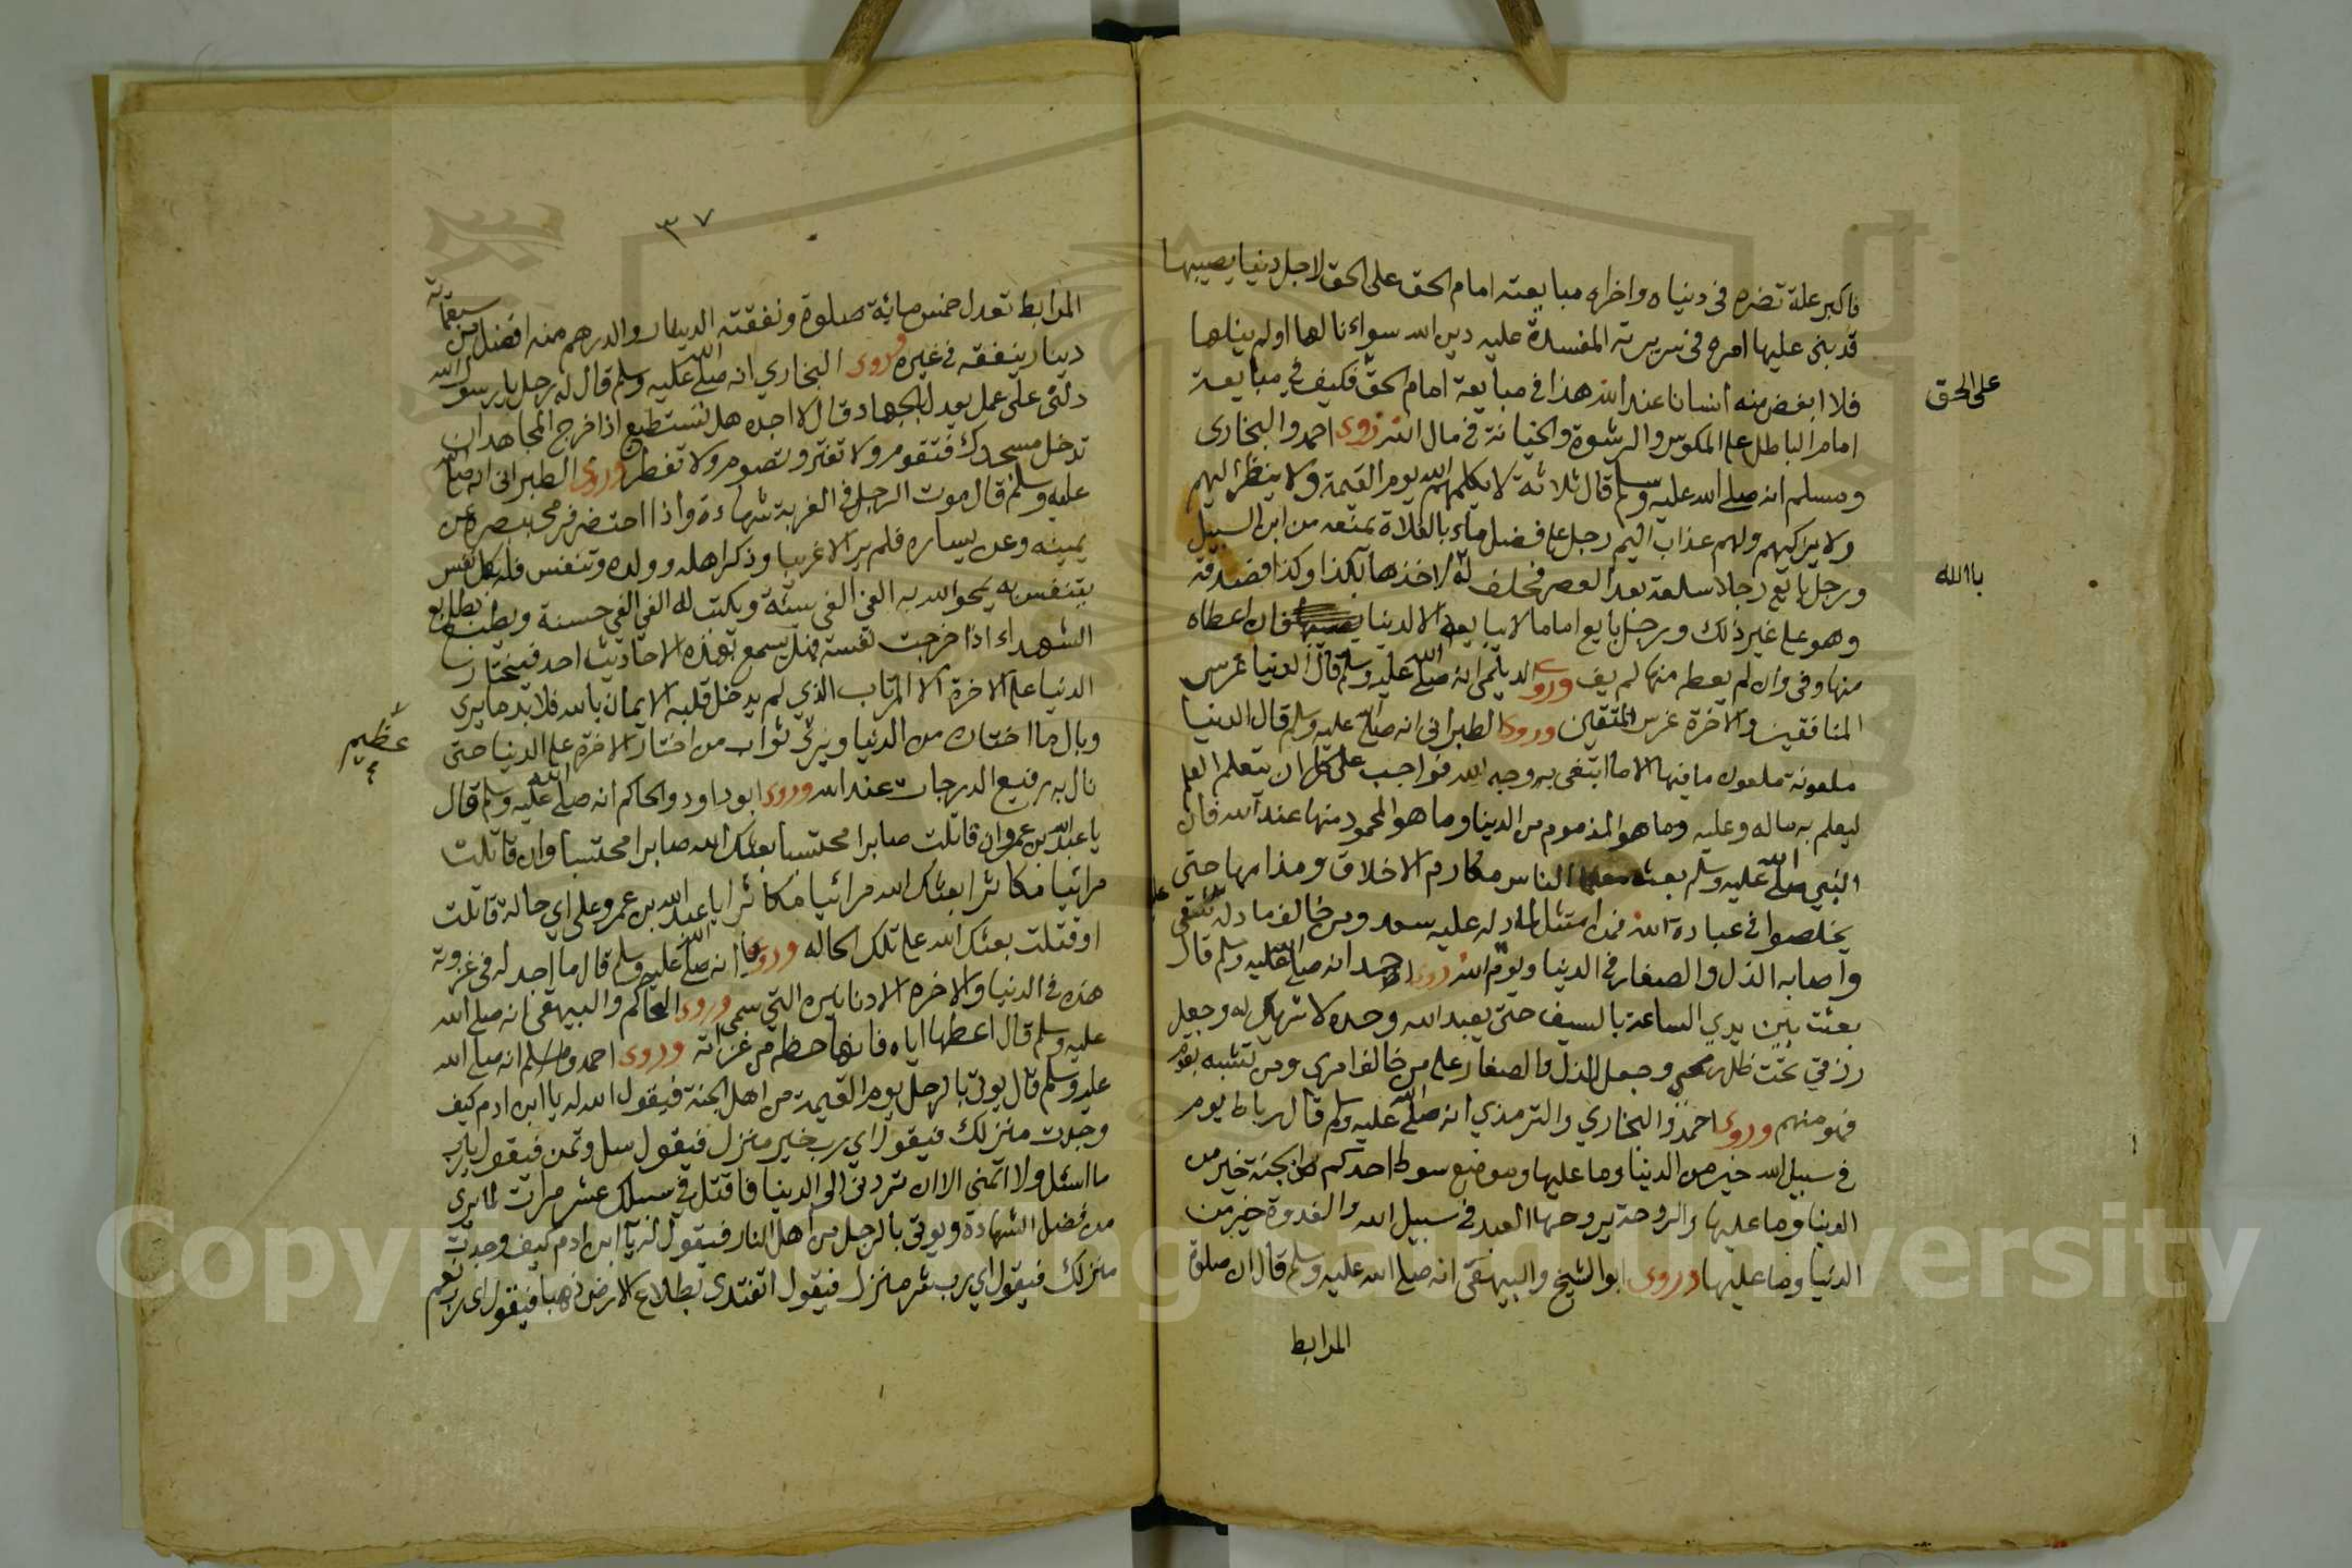 فاكبر علة تضره فى دينياه واخراه مبايعته امام الحق على الحق لاجل دنيا يصيبها
قد بنى عليها امره فى سريرته المفسدة عليه دين الله سواء نالها او لم ينلها
فلا ابغض منه انسانا عند الله هذا فى مبايعة امام الحق فكيف فى مبايعة
على الحق
امام الباطل على المكوس والرشوة والخيانة فى مال الله روى احمد والبخارى
ومسلم انه صلى الله عليه وسلم قال ثلاثة لا يكلمهم الله يوم القيمة ولا ينظر اليهم
ولا يزكيهم ولهم عذاب اليم رجل على فضل ماء بالفلاة يمنعه من ابن السبيل
ورجل بايع رجلا سلعة بعد العصر فحلف له لاخذها بكذا وكذا فصدقه
باالله
وهو على غير ذلك ورجل بايع اماما لا يبايعه الا لدنيا فان اعطاه
منها وفى وان لم يعطه منها لم يف وروى الديلمى انه صلى الله عليه وسلم قال الدنيا غرس
المنافقين والاخرة غرس المتقين وروى الطبرانى انه صلى الله عليه وسلم قال الدنيا
ملعونة ملعون ما فيها الا ما ابتغى به وجه الله فواجب على كل ان يتعلم العلم
ليعلم به ماله وعليه وما هو المذموم من الدينا وما هو المحمود منها عند الله فان
النبي صلى الله عليه وسلم بعثه الناس مكارم الاخلاق ومذامها حتى
يخلصوا فى عبادة الله فمن امتثل لما دله عليه سعد ومن خالف ما دله شقى
واصابه الذل والصغار فى الدنيا ويوم الله روى احمد انه صلى الله عليه وسلم قال
بعثت بين يدي الساعة بالسيف حتى يعبد الله وحده لا شريك له وجعل
رزقي تحت ظل رمحى وجعل الذل والصغار على من خالف امرى ومن تشبه بقوم
فهو منهم وروى احمد والبخاري والترمذي انه صلى الله عليه وسلم قال رباط يوم
فى سبيل الله خير من الدينا وما عليها وموضع سوط احدكم من الجنة خير من
الدينا وما عليها والروحة يروحها العبد فى سبيل الله والغدوة خير من
الدنيا وما عليها وروى ابو الشيخ والبيهقى انه صلى الله عليه وسلم قال ان صلوة
المرابط
٣٧
المرابط تعدل خمس مائة صلوة ونفقته الدينار والدرهم منه افضل من سبعمائة
دينار ينفقه فى غيره وروى البخاري انه صلى الله عليه وسلم قال له رجل يا رسول الله
دلنى على عمل يعدل الجهاد قال لا اجده هل تستطيع اذا خرج المجاهد ان
تدخل مسجدك فتقوم ولا تفتر وتصوم ولا تفطر وروى الطبرانى انه صلى الله
عليه وسلم قال موت الرجل فى الغربة شهادة واذا احتضر فرمى ببصره عن
يمينه وعن يساره فلم ير الا غريبا وذكر اهله وولده وتنفس فله بكل نفس
يتنفس به يمحو الله به الفى الفى سيئة ويكتب له الفى الفى حسنة ويطبع بطابع
الشهداء اذا خرجت نفسه فهل يسمع بهذه الاحاديث احد فيختار
الدنيا على الاخرة الا المرتاب الذي لم يدخل قلبه الايمان بالله فلا بد ما يرى
وبال ما اختار من الدنيا ويرى ثواب من اختار الاخرة على الدنيا حتى
عظيم
نال به رفيع الدرجات عند الله وروى ابو داود والحاكم انه صلى الله عليه وسلم قال
يا عبد الله بن عمرو ان قاتلت صابرا محتسبا بعثك الله صابرا محتسبا وان قاتلت
مرائيا مكاثرا بعثك الله مرائيا مكاثرا يا عبد الله بن عمرو على اي حالة قاتلت
او قتلت بعثك الله على تلك الحاله وروى انه صلى الله عليه وسلم قال ما اجد له فى غزوته
هذه فى الدنيا والاخرة الا دنانيره التي سمى وروى الحاكم والبيهقى انه صلى الله
عليه وسلم قال اعطها اياه فانها حظه من غزاته وروى احمد ومسلم انه صلى الله
عليه وسلم قال يوتى بالرجل يوم القيمة من اهل الجنة فيقول الله له يا ابن ادم كيف
وجدت منزلك فيقول اي رب خير منزل فيقول سل وتمن فيقول يا رب
ما اسئل ولا اتمنى الا ان تردنى الى الدينا فاقتل فى سبيلك عشر مرات لما يرى
من فضل الشهادة ويوتى بالرجل من اهل النار فيقول له يا ابن ادم كيف وجدت
منزلك فيقول اي رب شر منزل فيقول اتفتدى بطلاع الارض ذهبا فيقول اى رب نعم
Copyright © King Saud University